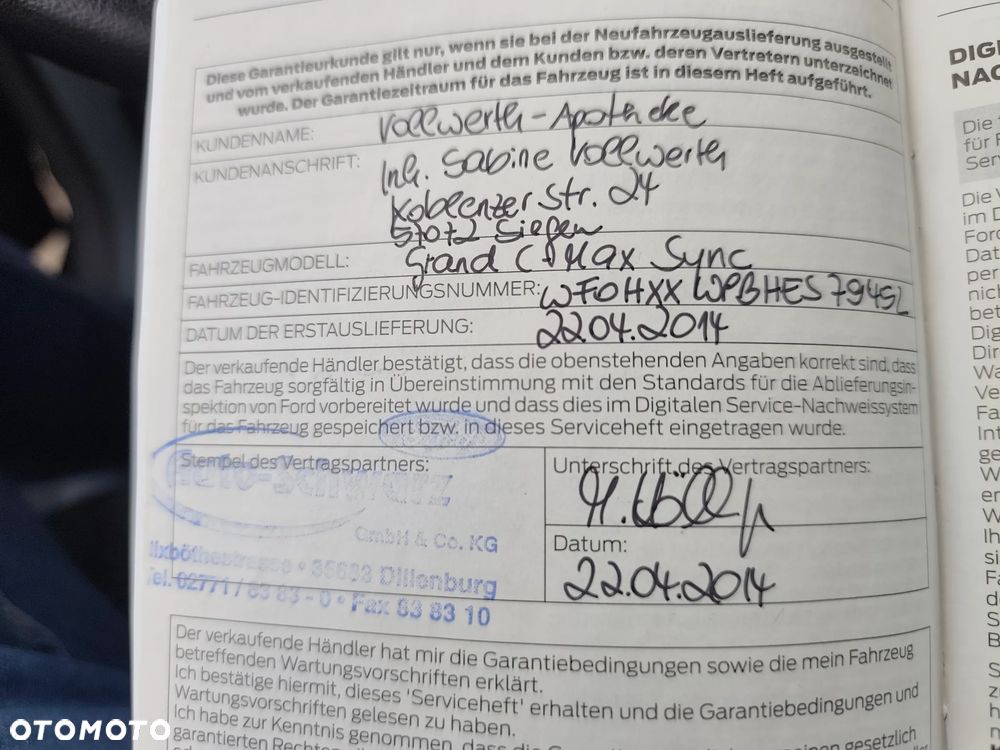 Diese Garantieurkunde gilt nur, wenn sie bei der Neufahrzeugauslieferung ausgestellt
und vom verkaufenden Händler und dem Kunden bzw. deren Vertretern unterzeichnet
wurde. Der Garantiezeitraum für das Fahrzeug ist in diesem Heft aufgeführt.
KUNDENNAME: Vollwerth-Apotheke
KUNDENANSCHRIFT: Inh. Sabine Vollwerth
Koblenzer Str. 24
57072 Siegen
FAHRZEUGMODELL: Grand C-Max Sync
FAHRZEUG-IDENTIFIZIERUNGSNUMMER: WF0HXXWPBHES79452
DATUM DER ERSTAUSLIEFERUNG: 22.04.2014
Der verkaufende Händler bestätigt, dass die obenstehenden Angaben korrekt sind, dass
das Fahrzeug sorgfältig in Übereinstimmung mit den Standards für die Ablieferungsin-
spektion von Ford vorbereitet wurde und dass dies im Digitalen Service-Nachweissystem
für das Fahrzeug gespeichert bzw. in dieses Serviceheft eingetragen wurde.
Stempel des Vertragspartners:
Auto-Schwarz
GmbH & Co. KG
35683 Dillenburg
Tel. 02771 / 83 83 - 0 • Fax 83 83 10
Unterschrift des Vertragspartners:
Datum:
22.04.2014
Der verkaufende Händler hat mir die Garantiebedingungen sowie die mein Fahrzeug
betreffenden Wartungsvorschriften erklärt.
Ich bestätige hiermit, dieses 'Serviceheft' erhalten und die Garantiebedingungen und
Wartungsvorschriften gelesen zu haben.
Ich habe zur Kenntnis genommen, dass die
garantierten Rechte
gesetzlich
DIGI
NAC
Die
für
Serv
Die
im D
Ford
Dat
per
nich
bet
Dig
Dir
Wa
Ve
Fa
Int
ge
W
er
W
Ih
si
Fa
de
S
B
S
z
h
OTOMOTO